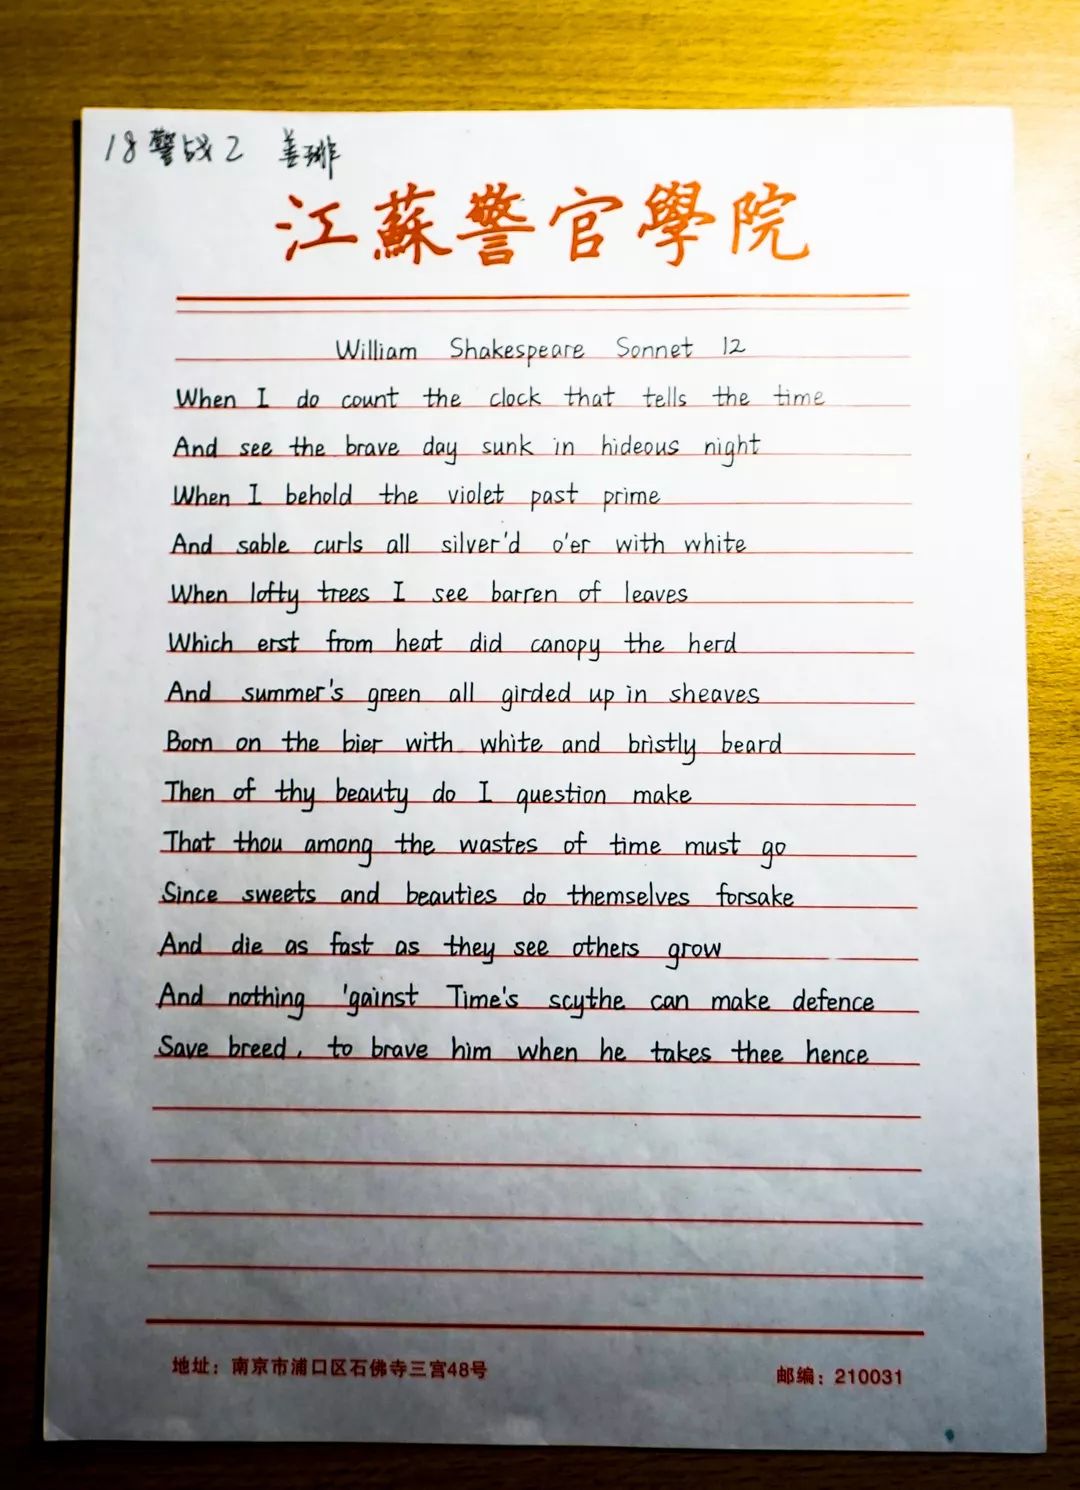 18警战2 姜琲
江蘇警官學院
William Shakespeare Sonnet 12
When I do count the clock that tells the time
And see the brave day sunk in hideous night
When I behold the violet past prime
And sable curls all silver'd o'er with white
When lofty trees I see barren of leaves
Which erst from heat did canopy the herd
And summer's green all girded up in sheaves
Born on the bier with white and bristly beard
Then of thy beauty do I question make
That thou among the wastes of time must go
Since sweets and beauties do themselves forsake
And die as fast as they see others grow
And nothing 'gainst Time's scythe can make defence
Save breed, to brave him when he takes thee hence
地址：南京市浦口区石佛寺三宫48号 邮编：210031